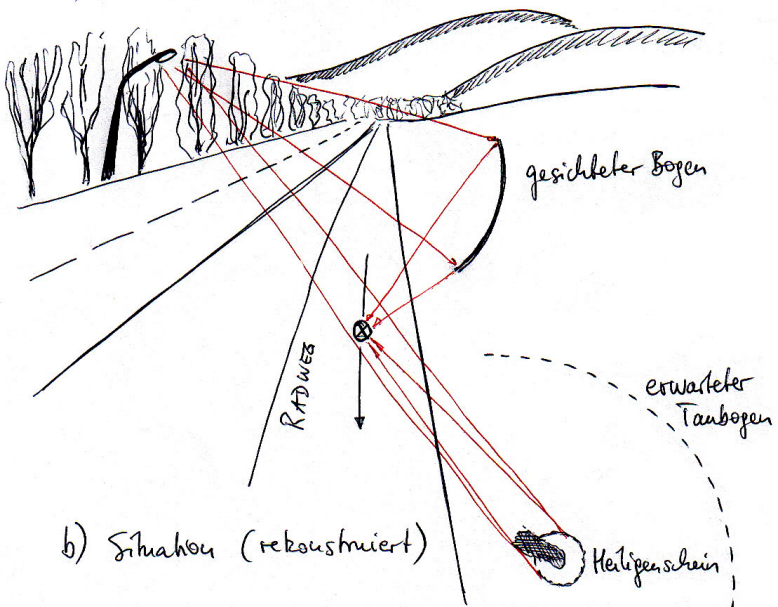 gesichteter Bogen
RADWEG
erwarteter
Taubogen
b) Situation (rekonstruiert)
Heiligenschein